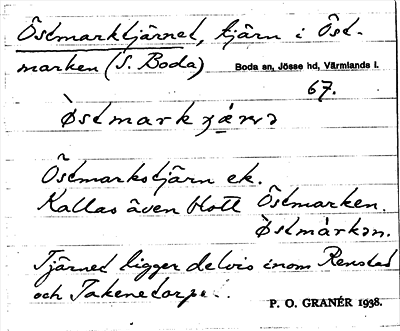 Östmarktjärnet, tjärn i Öst-
marken (S. Boda) Boda sn, Jösse hd, Värmlands l.
67.
Östmarkstjärn ek.
Kallas även blott Östmarken.
Tjärnet ligger delvis inom Renstad
och Takene
P. O. GRANÉR 1938.